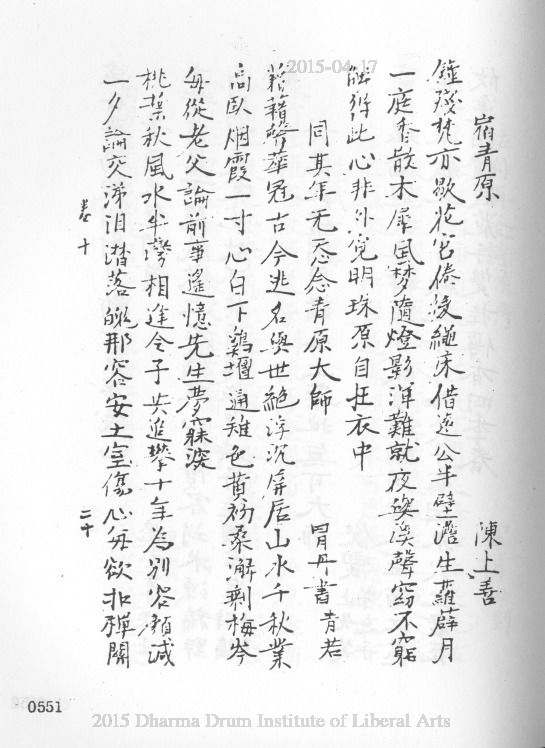 宿青原 陳上善
鐘殘梵亦歇花宮倦後繩床借遠公半壁澹生蘿薜月
一庭香散木犀風夢隨燈影渾難就夜與溪聲窈不窮
解得此心非外覓明珠原自在衣中
同其年无忝念青原大師 冒丹書青若
藉藉聲華冠古今逃名與世絕浮沉屏居山水千秋業
高臥烟霞一寸心白下鷄壇色黃初桑澥剩梅岑
每從老父論前事遙憶先生夢寐深
桃葉秋風水半灣相逢令子共追攀十年為別容顏減
一夕論交涕泪潸落魄那容安土室傷心每欲扣禪關
卷十 二十
0551
2015-04-17
2015 Dharma Drum Institute of Liberal Arts